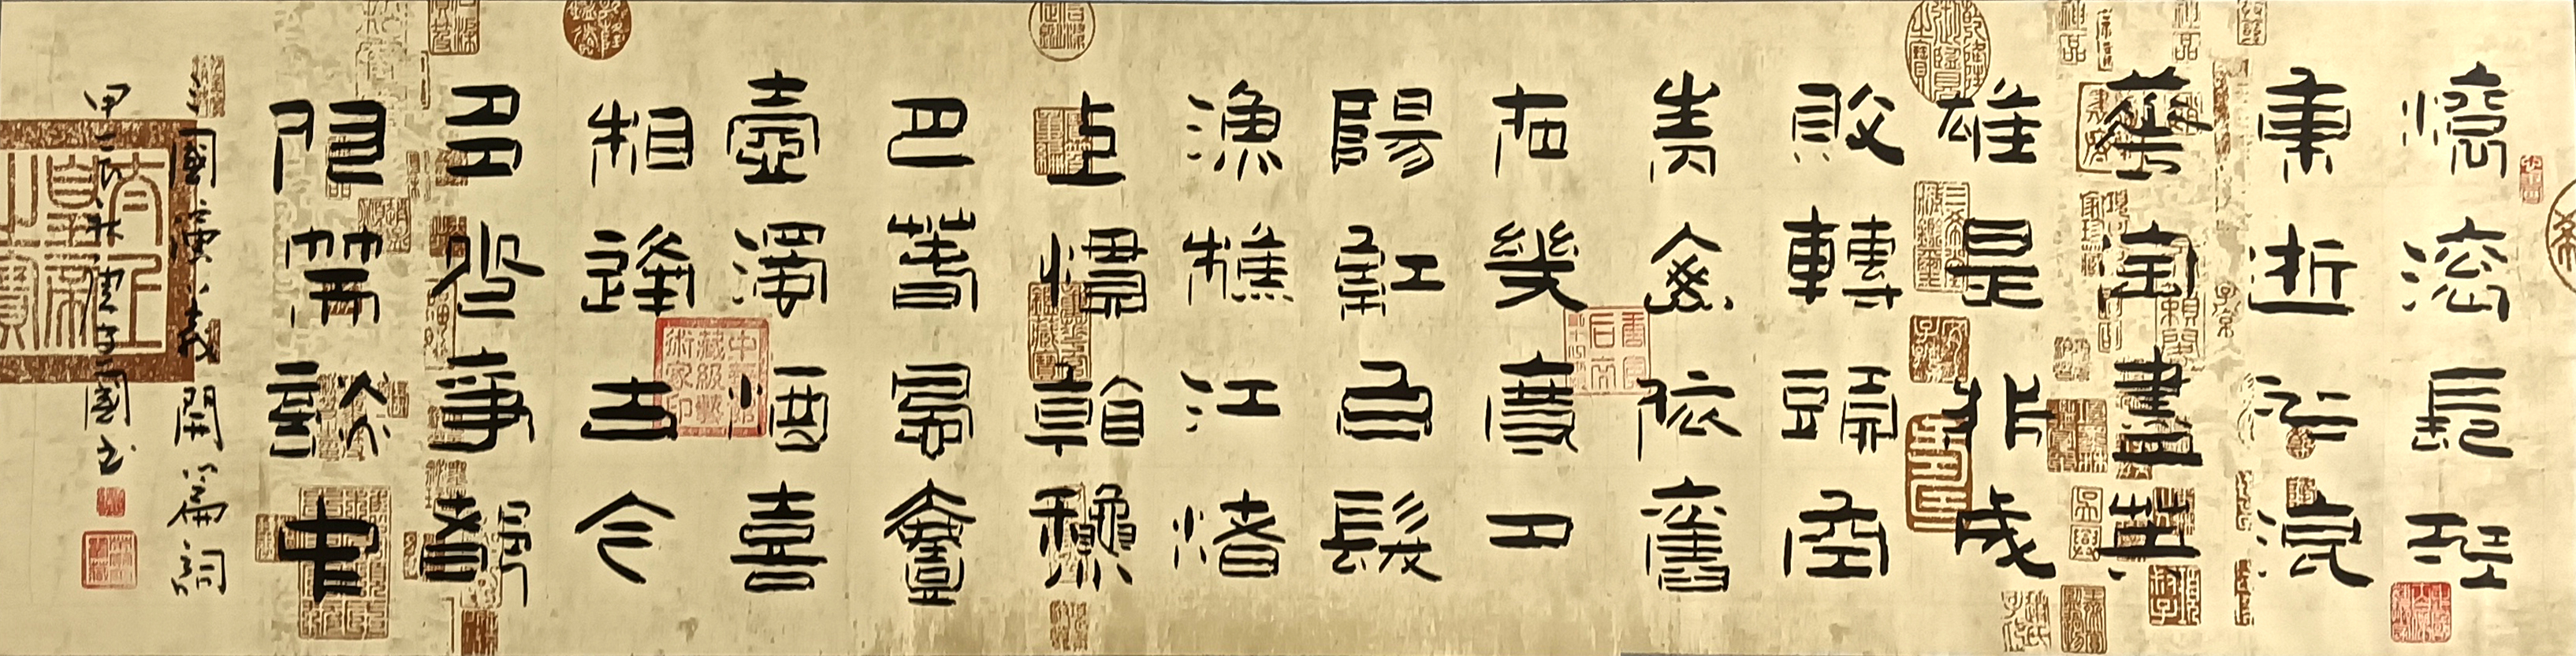 滾滾長江
東逝水浪
華淘盡英
雄是非成
敗轉頭空
青山依舊
在幾度夕
陽紅白髮
漁樵江渚
上慣看秋
月春風壹
壺濁酒喜
相逢古今
多少事都
付笑談中
三國演義開篇詞
甲辰秋國书